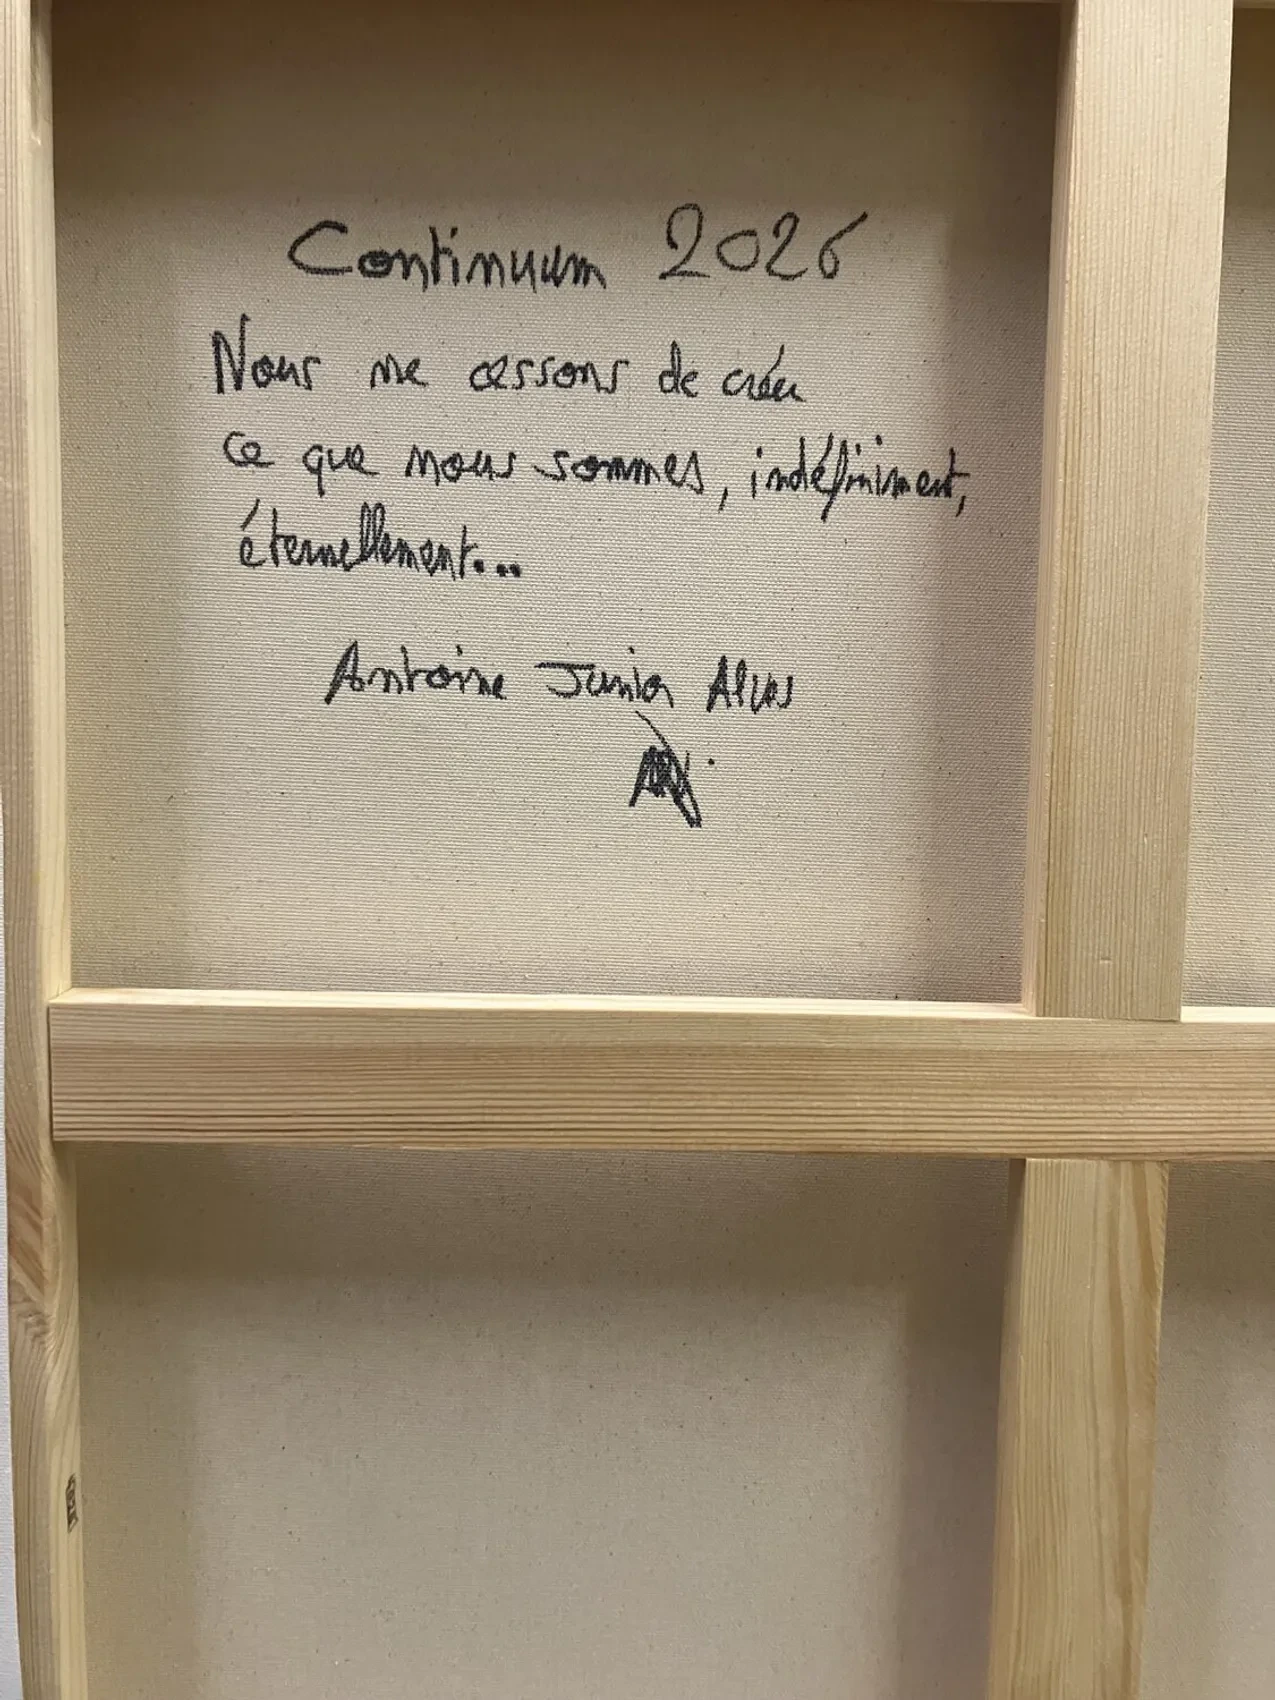 Continuum 2026
Nous ne cessons de créer
ce que nous sommes, indéfiniment,
éternellement...
Antoine Junior Alves